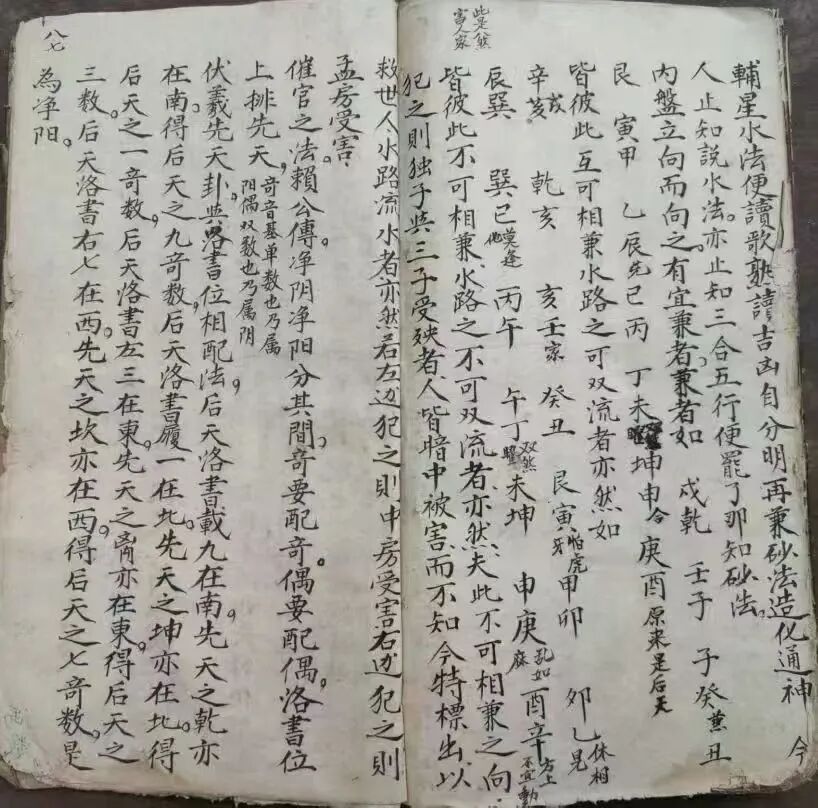 此是煞
富人家
輔星水法便讀歌熟讀吉凶自分明再兼砂法造化通神 今
人止知說水法。亦止知三合五行便罷了那知砂法。
內盤立向而向之。有宜兼者兼者如 戌乾 壬子 子癸 丑
艮 寅甲 乙辰 巳丙 丁未 坤申 庚酉 原来是后天
皆彼此互可相兼水路之可双流者亦然如
辛戌 乾亥 亥壬 癸丑 艮寅 甲卯 卯乙
辰巽 巽巳 丙午 午丁 未坤 申庚 酉辛
皆彼此不可相兼水路之不可双流者亦然夫此不可相兼之向
犯之則独子與三子受殃者人皆暗中被害而不知今特標出以
救世人水路流水者亦然若左边犯之則中房受害右边犯之則
孟房受害
催官之法賴公傳。净阴净阳分其間。奇要配奇。偶要配偶。洛書位
上排先天。奇音基单数也乃属
阳偶双数也乃属阴
伏羲先天卦。與洛書位相配法。后天洛書載九在南。先天之乾亦
在南。得后天之九奇数。后天洛書履一在北。先天之坤亦在北。得
后天之一奇数。后天洛書左三在東。先天之离亦在東。得后天之
三数。后天洛書右七在西。先天之坎亦在西。得后天之七奇数。是
為净阳。
八七